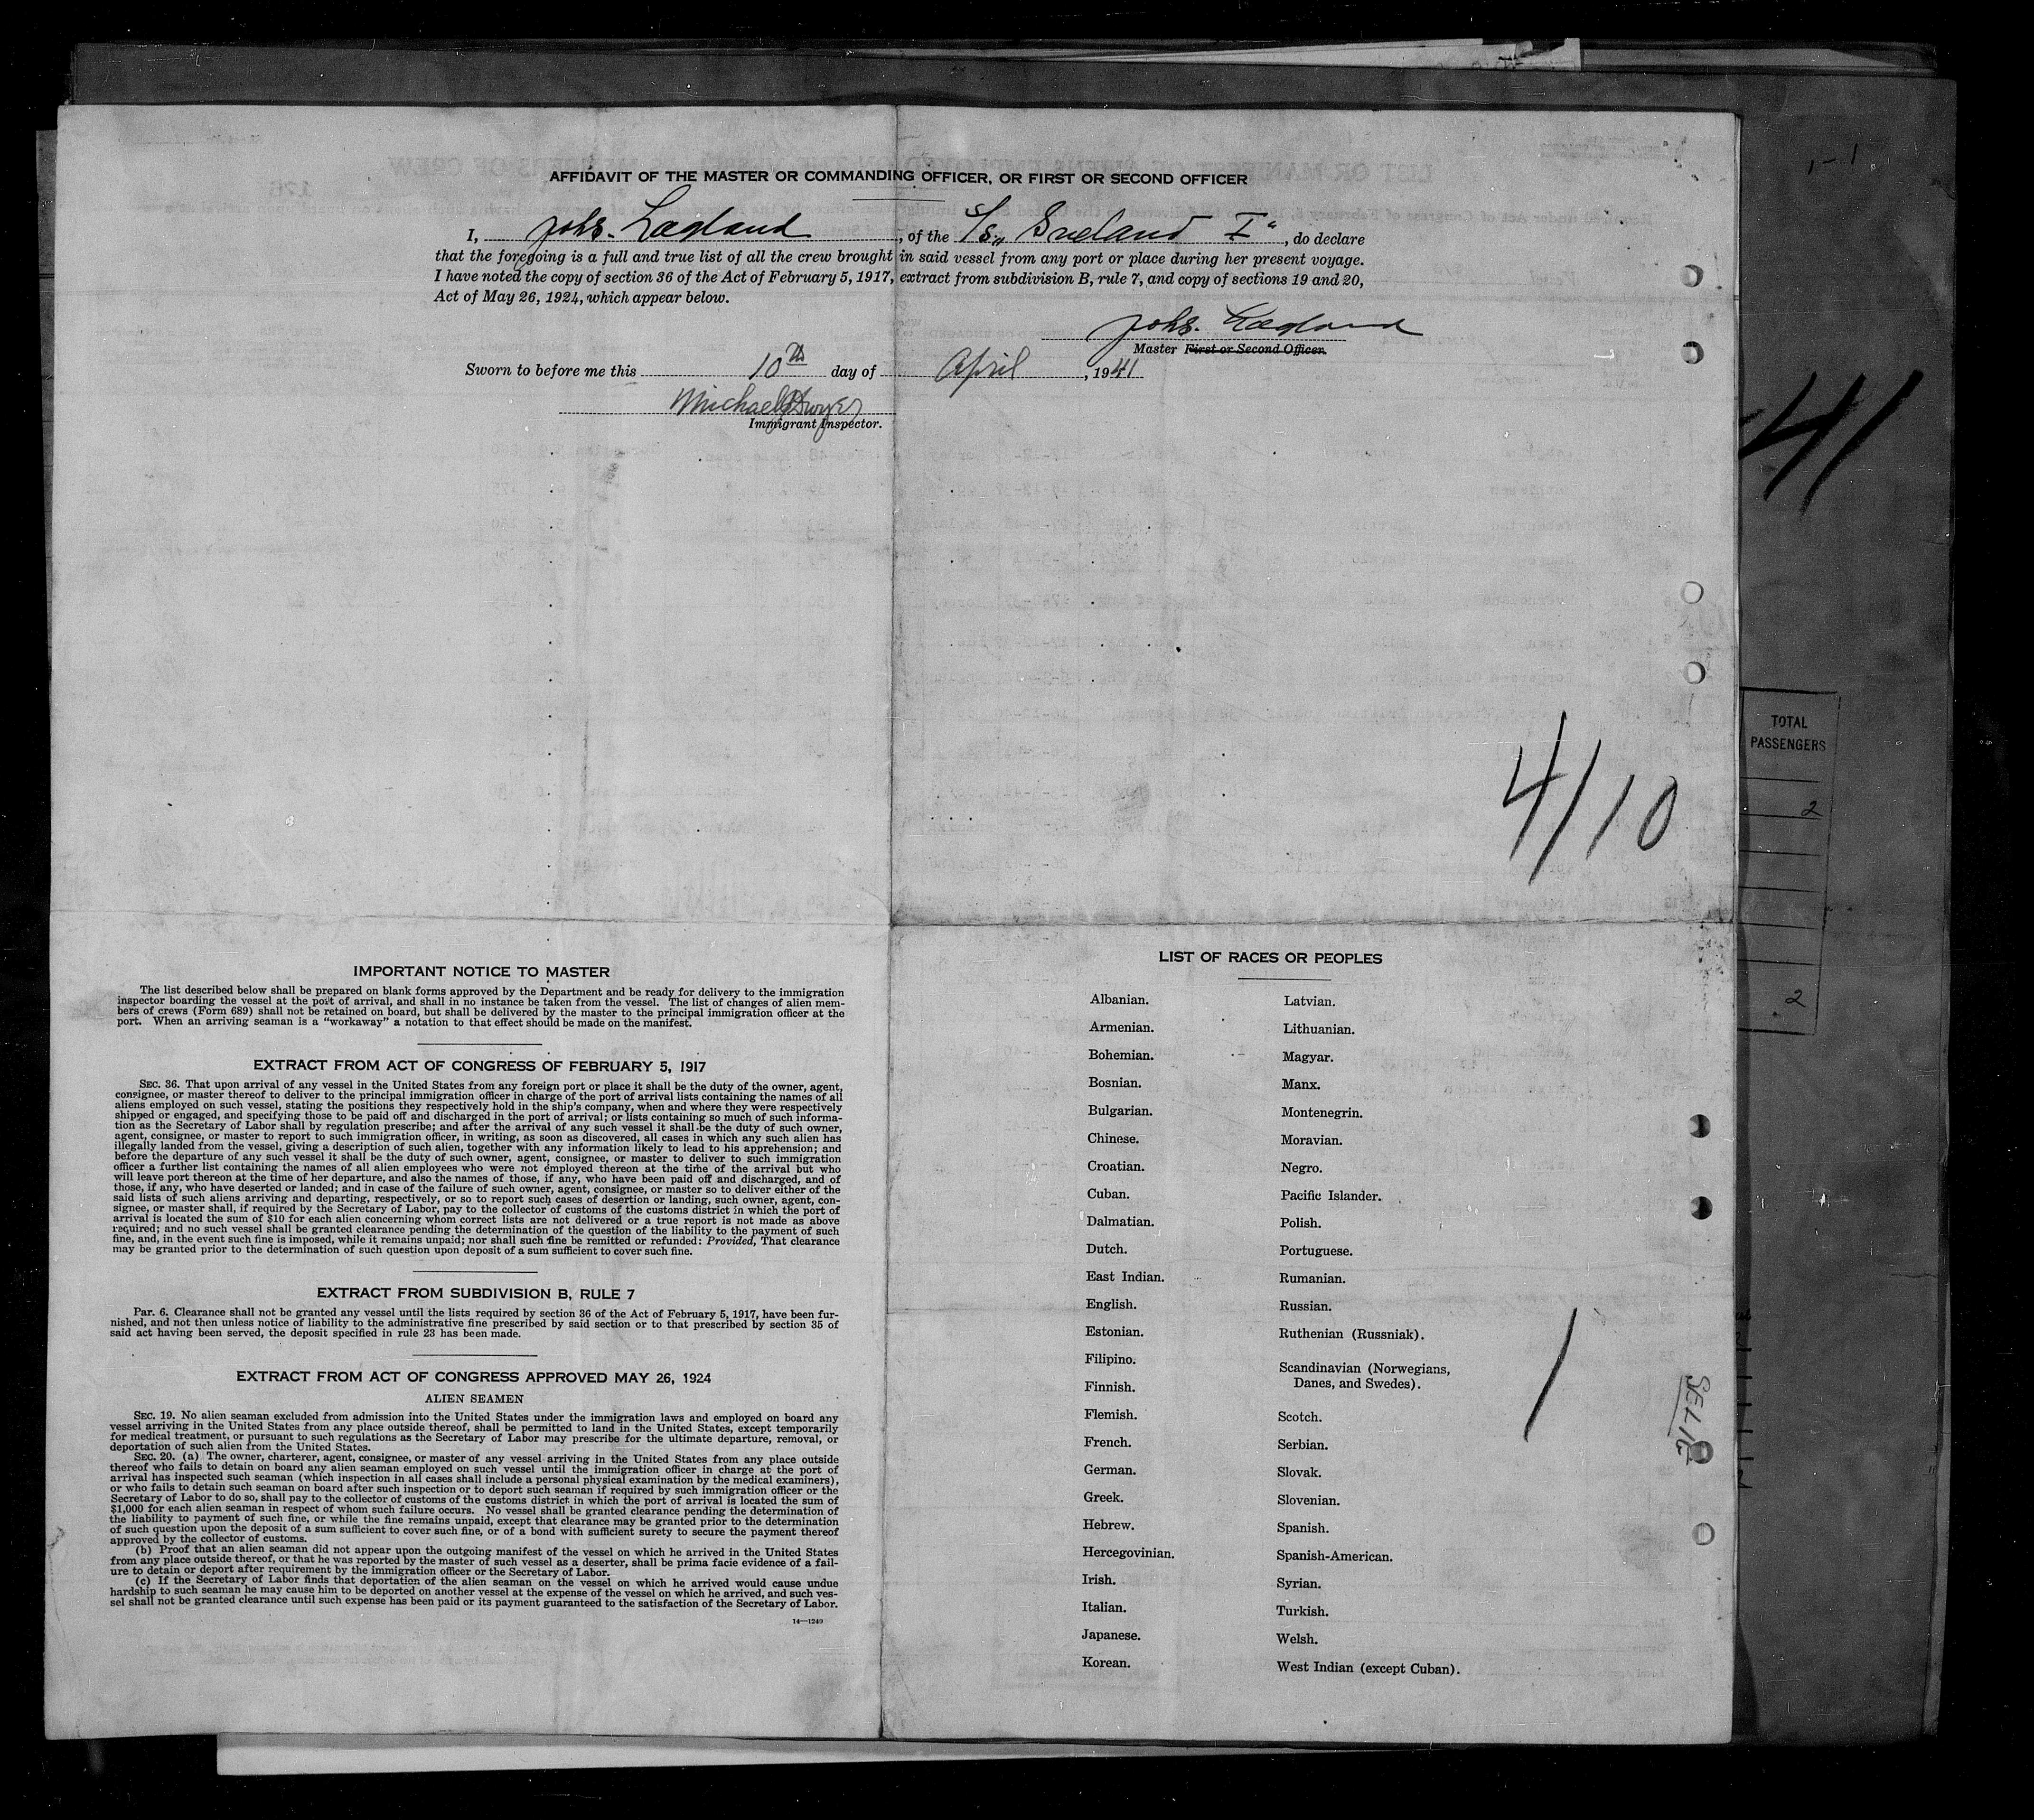 AFFIDAVIT OF THE MASTER OR COMMANDING OFFICER, OR FIRST OR SECOND OFFICER
I, Johs. Lagland, of the S/S „ Sneland I“, do declare
that the foregoing is a full and true list of all the crew brought in said vessel from any port or place during her present voyage.
I have noted the copy of section 36 of the Act of February 5, 1917, extract from subdivision B, rule 7, and copy of sections 19 and 20,
Act of May 26, 1924, which appear below.
Johs. Lagland
Master First or Second Officer.
Sworn to before me this 10th day of April, 1941
Michael Dwyer
Immigrant Inspector.
41
4/10
TOTAL
PASSENGERS
2
2
IMPORTANT NOTICE TO MASTER
The list described below shall be prepared on blank forms approved by the Department and be ready for delivery to the immigration
inspector boarding the vessel at the port of arrival, and shall in no instance be taken from the vessel. The list of changes of alien mem-
bers of crews (Form 689) shall not be retained on board, but shall be delivered by the master to the principal immigration officer at the
port. When an arriving seaman is a "workaway" a notation to that effect should be made on the manifest.
EXTRACT FROM ACT OF CONGRESS OF FEBRUARY 5, 1917
SEC. 36. That upon arrival of any vessel in the United States from any foreign port or place it shall be the duty of the owner, agent,
consignee, or master thereof to deliver to the principal immigration officer in charge of the port of arrival lists containing the names of all
aliens employed on such vessel, stating the positions they respectively hold in the ship's company, when and where they were respectively
shipped or engaged, and specifying those to be paid off and discharged in the port of arrival; or lists containing so much of such informa-
tion as the Secretary of Labor shall by regulation prescribe; and after the arrival of any such vessel it shall be the duty of such owner,
agent, consignee, or master to report to such immigration officer, in writing, as soon as discovered, all cases in which any such alien has
illegally landed from the vessel, giving a description of such alien, together with any information likely to lead to his apprehension; and
before the departure of any such vessel it shall be the duty of such owner, agent, consignee, or master to deliver to such immigration
officer a further list containing the names of all alien employees who were not employed thereon at the time of the arrival but who
will leave port thereon at the time of her departure, and also the names of those, if any, who have been paid off and discharged, and of
those, if any, who have deserted or landed; and in case of the failure of such owner, agent, consignee, or master so to deliver either of the
said lists of such aliens arriving and departing, respectively, or so to report such cases of desertion or landing, such owner, agent, con-
signee, or master shall, if required by the Secretary of Labor, pay to the collector of customs of the customs district in which the port of
arrival is located the sum of $10 for each alien concerning whom correct lists are not delivered or a true report is not made as above
required; and no such vessel shall be granted clearance pending the determination of the question of the liability to the payment of such
fine, and, in the event such fine is imposed, while it remains unpaid; nor shall such fine be remitted or refunded: Provided, That clearance
may be granted prior to the determination of such question upon deposit of a sum sufficient to cover such fine.
EXTRACT FROM SUBDIVISION B, RULE 7
Par. 6. Clearance shall not be granted any vessel until the lists required by section 36 of the Act of February 5, 1917, have been fur-
nished, and not then unless notice of liability to the administrative fine prescribed by said section or to that prescribed by section 35 of
said act having been served, the deposit specified in rule 23 has been made.
EXTRACT FROM ACT OF CONGRESS APPROVED MAY 26, 1924
ALIEN SEAMEN
SEC. 19. No alien seaman excluded from admission into the United States under the immigration laws and employed on board any
vessel arriving in the United States from any place outside thereof, shall be permitted to land in the United States, except temporarily
for medical treatment, or pursuant to such regulations as the Secretary of Labor may prescribe for the ultimate departure, removal, or
deportation of such alien from the United States.
SEC. 20. (a) The owner, charterer, agent, consignee, or master of any vessel arriving in the United States from any place outside
thereof who fails to detain on board any alien seaman employed on such vessel until the immigration officer in charge at the port of
arrival has inspected such seaman (which inspection in all cases shall include a personal physical examination by the medical examiners),
or who fails to detain such seaman on board after such inspection or to deport such seaman if required by such immigration officer or the
Secretary of Labor to do so, shall pay to the collector of customs of the customs district in which the port of arrival is located the sum of
$1,000 for each alien seaman in respect of whom such failure occurs. No vessel shall be granted clearance pending the determination of
the liability to payment of such fine, or while the fine remains unpaid, except that clearance may be granted prior to the determination
of such question upon the deposit of a sum sufficient to cover such fine, or of a bond with sufficient surety to secure the payment thereof
approved by the collector of customs.
(b) Proof that an alien seaman did not appear upon the outgoing manifest of the vessel on which he arrived in the United States
from any place outside thereof, or that he was reported by the master of such vessel as a deserter, shall be prima facie evidence of a fail-
ure to detain or deport after requirement by the immigration officer or the Secretary of Labor.
(c) If the Secretary of Labor finds that deportation of the alien seaman on the vessel on which he arrived would cause undue
hardship to such seaman he may cause him to be deported on another vessel at the expense of the vessel on which he arrived, and such ves-
sel shall not be granted clearance until such expense has been paid or its payment guaranteed to the satisfaction of the Secretary of Labor.
14—1249
LIST OF RACES OR PEOPLES
Albanian.
Armenian.
Bohemian.
Bosnian.
Bulgarian.
Chinese.
Croatian.
Cuban.
Dalmatian.
Dutch.
East Indian.
English.
Estonian.
Filipino.
Finnish.
Flemish.
French.
German.
Greek.
Hebrew.
Hercegovinian.
Irish.
Italian.
Japanese.
Korean.
Latvian.
Lithuanian.
Magyar.
Manx.
Montenegrin.
Moravian.
Negro.
Pacific Islander.
Polish.
Portuguese.
Rumanian.
Russian.
Ruthenian (Russniak).
Scandinavian (Norwegians,
Danes, and Swedes).
Scotch.
Serbian.
Slovak.
Slovenian.
Spanish.
Spanish-American.
Syrian.
Turkish.
Welsh.
West Indian (except Cuban).